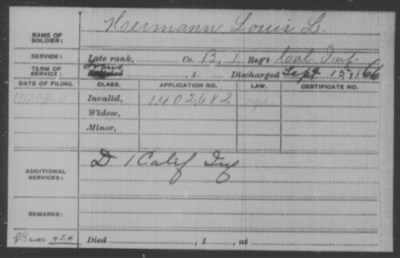 NAME OF SOLDIER: Hermann Louis L.
SERVICE: Late rank, Co. B, 1 Reg't Cal Inf
TERM OF SERVICE: , 1 Discharged Sept 15, 1866
DATE OF FILING. CLASS. APPLICATION NO. LAW. CERTIFICATE NO.
Invalid, 1402682
Widow,
Minor,
ADDITIONAL SERVICES: D 1 Calif Inf
REMARKS:
Died , 1 , at